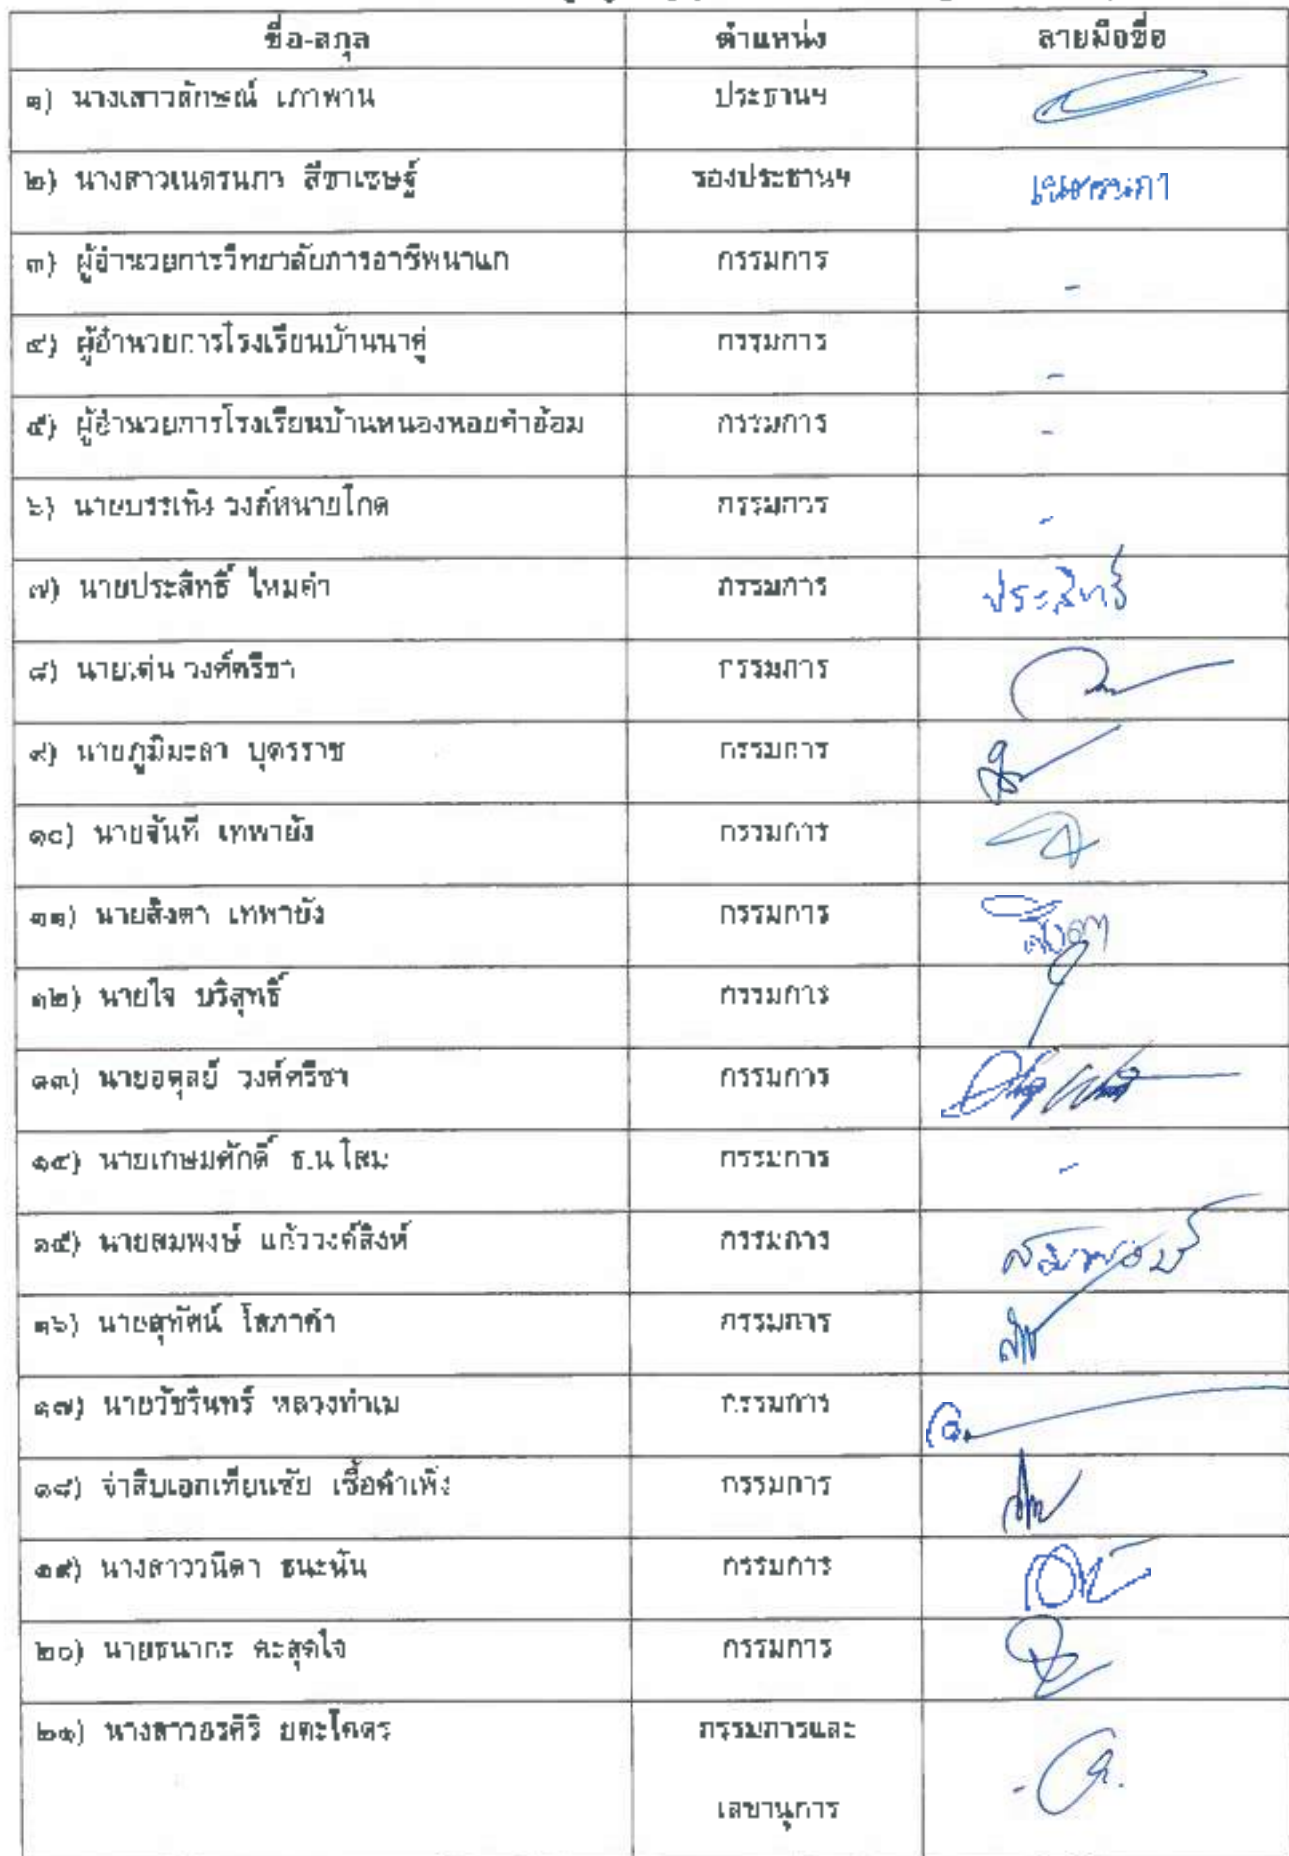 ชื่อ-สกุล ตำแหน่ง ลายมือชื่อ
๑) นางเสาวลักษณ์ เภาพาน ประธานฯ
๒) นางสาวเนตรนภา สีชาเชษฐ์ รองประธานฯ เนตรนภา
๓) ผู้อำนวยการวิทยาลัยการอาชีพนาแก กรรมการ -
๔) ผู้อำนวยการโรงเรียนบ้านนาคู่ กรรมการ -
๕) ผู้อำนวยการโรงเรียนบ้านหนองหอยคำอ้อม กรรมการ -
๖) นายบรรเทิง วงค์หนายโกด กรรมการ -
๗) นายประสิทธิ์ ไหมคำ กรรมการ ประสิทธิ์
๘) นายเด่น วงศ์ศรีชา กรรมการ
๙) นายภูมิมะลา บุตรราช กรรมการ
๑๐) นายจันที เทพายัง กรรมการ
๑๑) นายสิงดา เทพายัง กรรมการ สิงดา
๑๒) นายใจ บริสุทธิ์ กรรมการ
๑๓) นายอดุลย์ วงศ์ศรีชา กรรมการ
๑๔) นายเกษมศักดิ์ กรรมการ -
๑๕) นายสมพงษ์ แก้ววงค์สิงห์ กรรมการ สมพงษ์
๑๖) นายสุทัศน์ โสภาคำ กรรมการ
๑๗) นายวัชรินทร์ หลวงทำเม กรรมการ
๑๘) จ่าสิบเอกเทียนชัย เชื้อคำเพ็ง กรรมการ
๑๙) นางสาววนิดา ธนะนัน กรรมการ
๒๐) นายธนากร คะสุดใจ กรรมการ
๒๑) นางสาวอรศิริ ยตะโคตร กรรมการและ
เลขานุการ